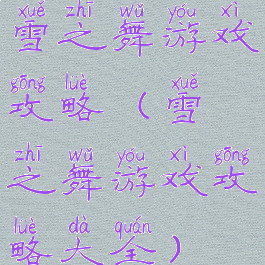 xuě zhī wǔ yóu xì
雪之舞游戏
gōng lüè xuě
攻略(雪
zhī wǔ yóu xì gōng
之舞游戏攻
lüè dà quán
略大全)